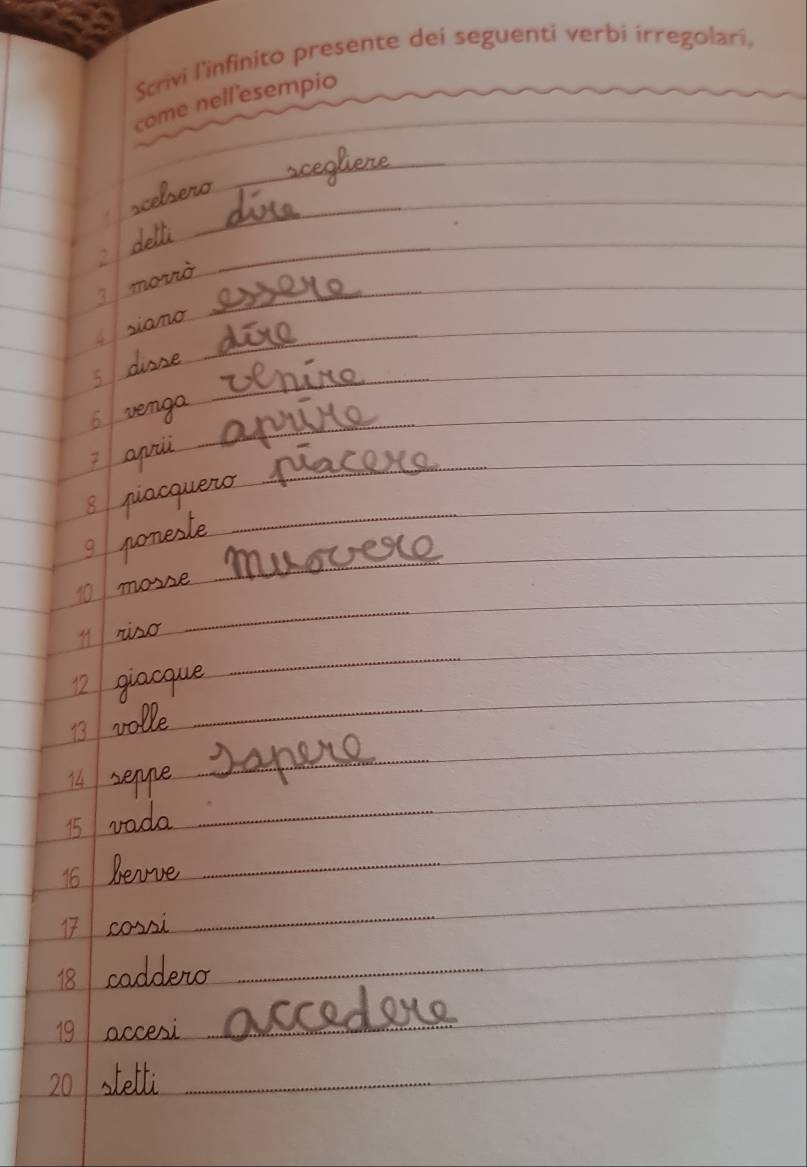 Scrivi l'infinito presente dei seguenti verbi irregolari,
come nell'esempio
1 scelsero scegliere
2 detti dire
3 morrò
4 siano essere
5 disse dire
6 venga venire
7 aprii aprire
8 piacquero piacere
9 poneste
10 mosse muovere
11 riso
12 giacque
13 volle
14 seppe sapere
15 vada
16 bevve
17 cossi
18 caddero
19 accesi accedere
20 stetti